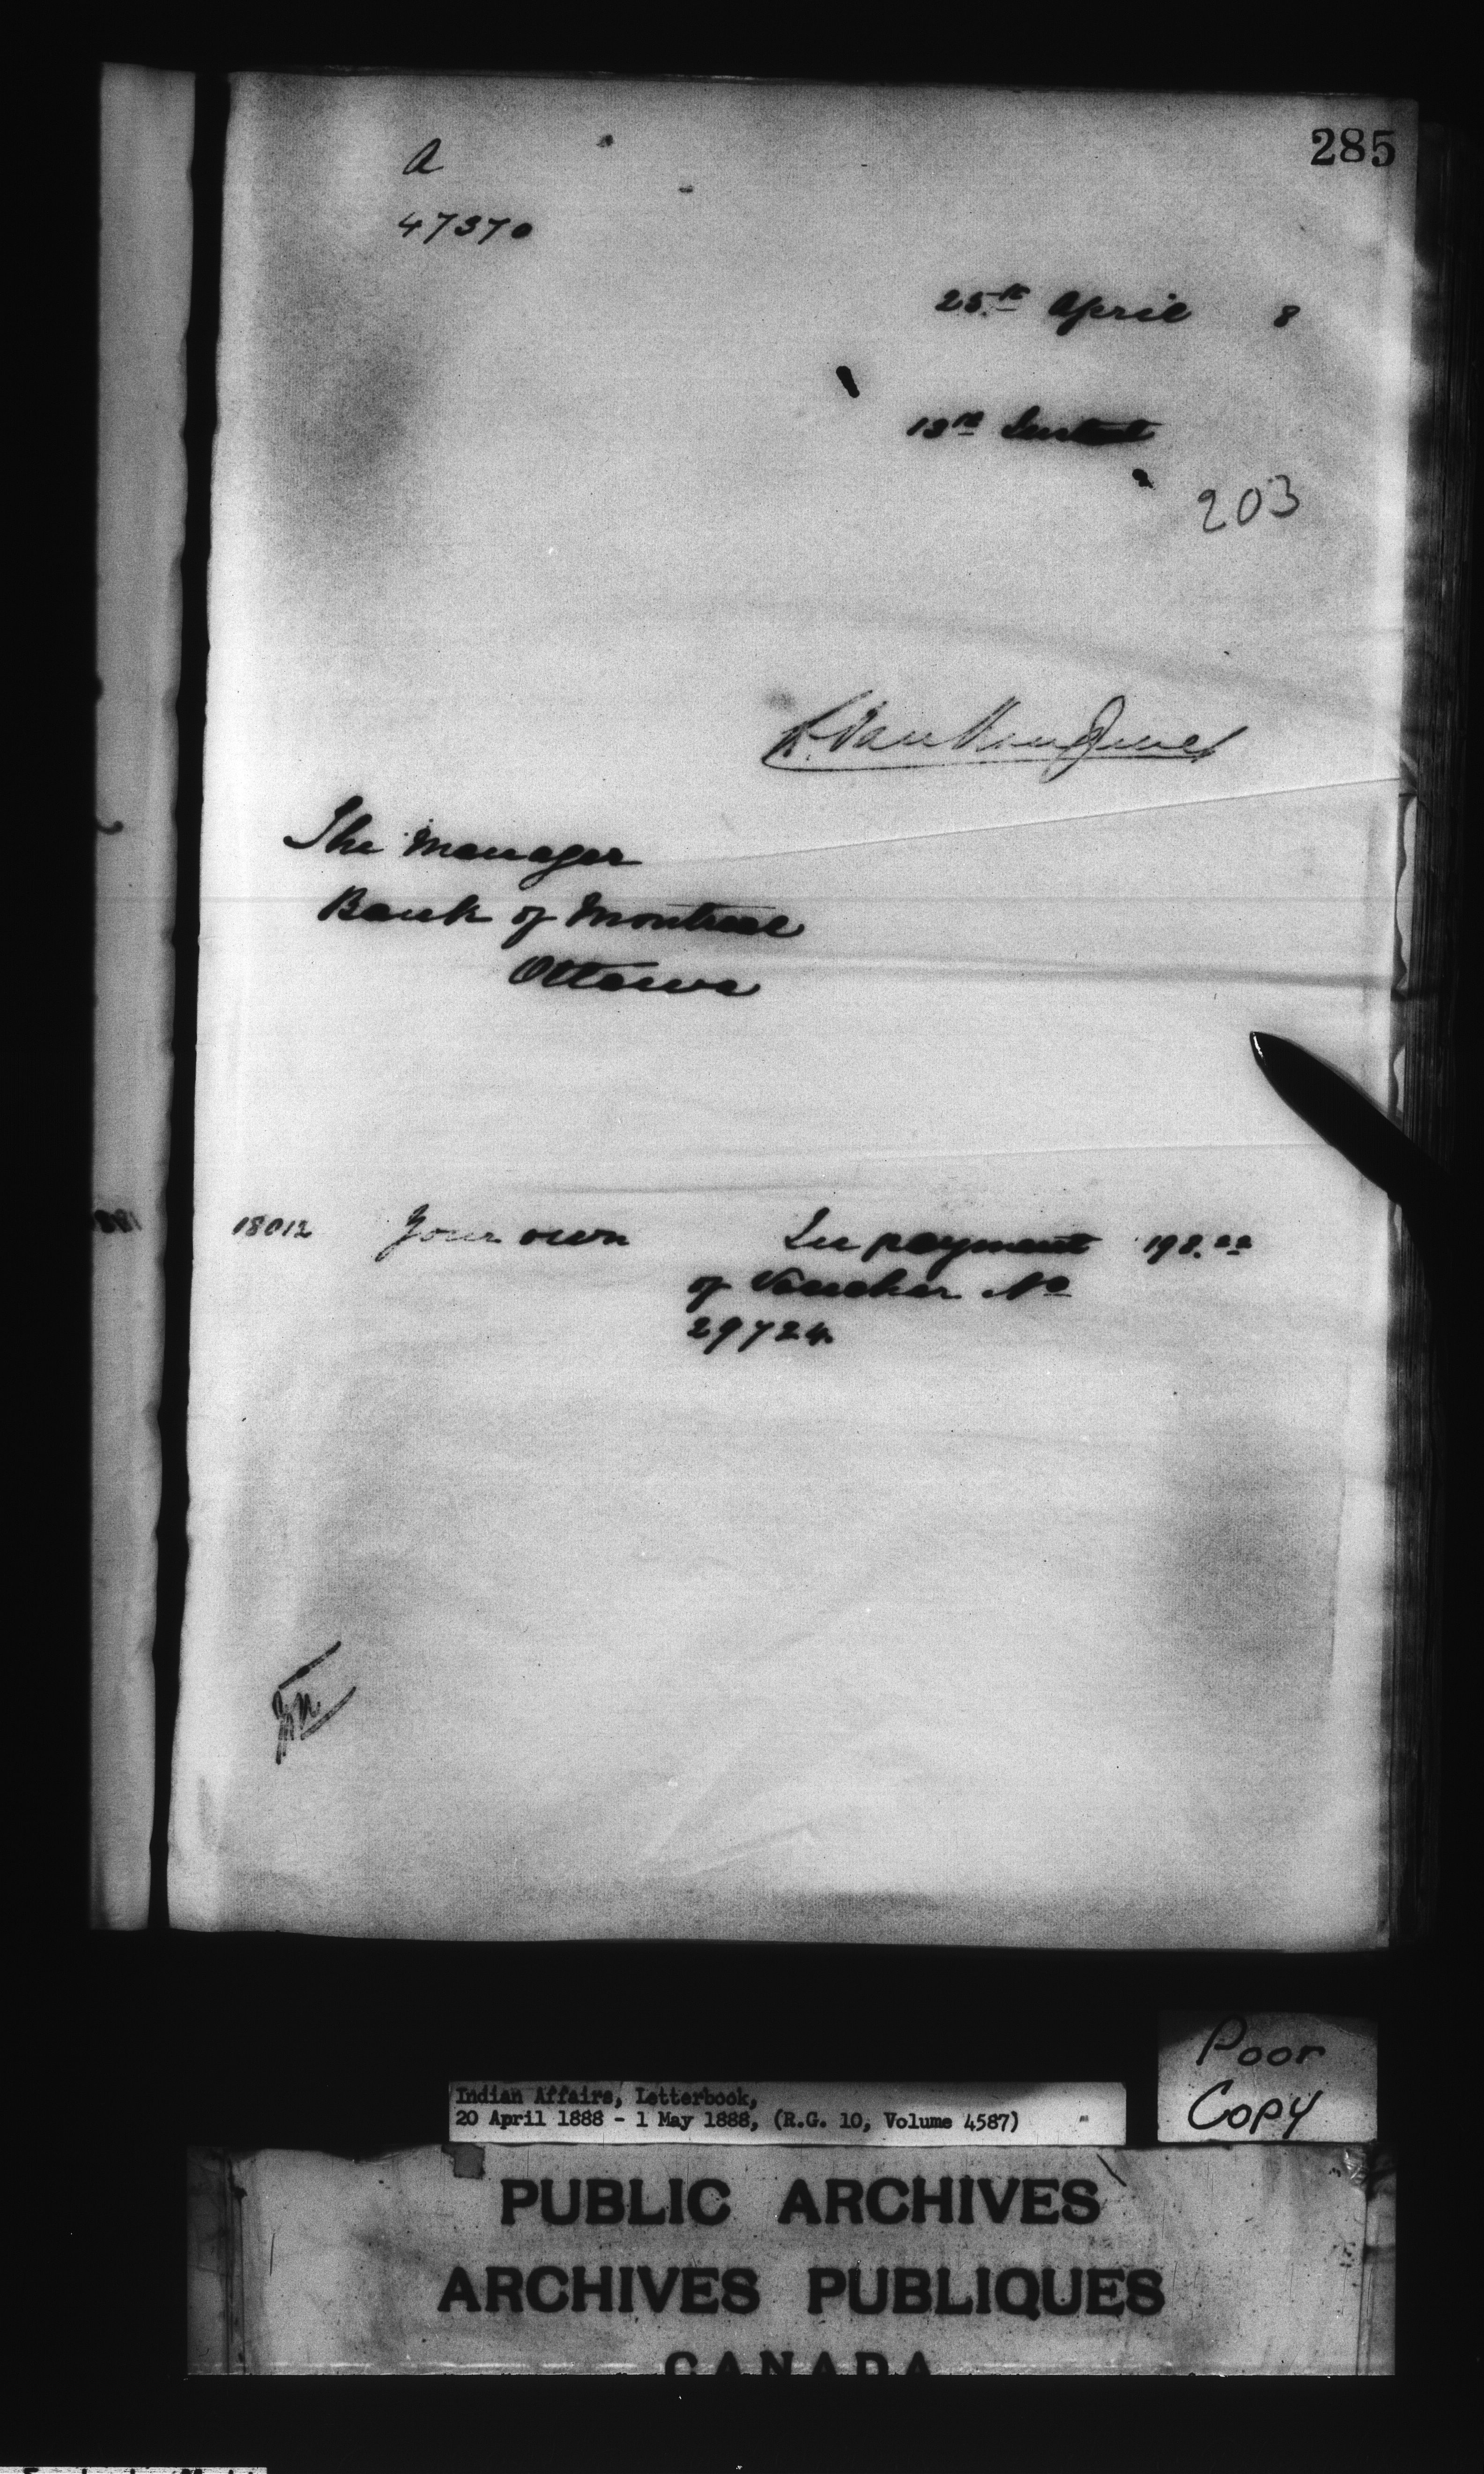 285
A
47370
25th April 8
13th Instant
203
L. VanKoughnet
The Manager
Bank of Montreal
Ottawa
18012 Your own In payment 198.22
of Voucher No
29724
Poor
Copy
Indian Affairs, Letterbook,
20 April 1888 - 1 May 1888, (R.G. 10, Volume 4587)
PUBLIC ARCHIVES
ARCHIVES PUBLIQUES
CANADA